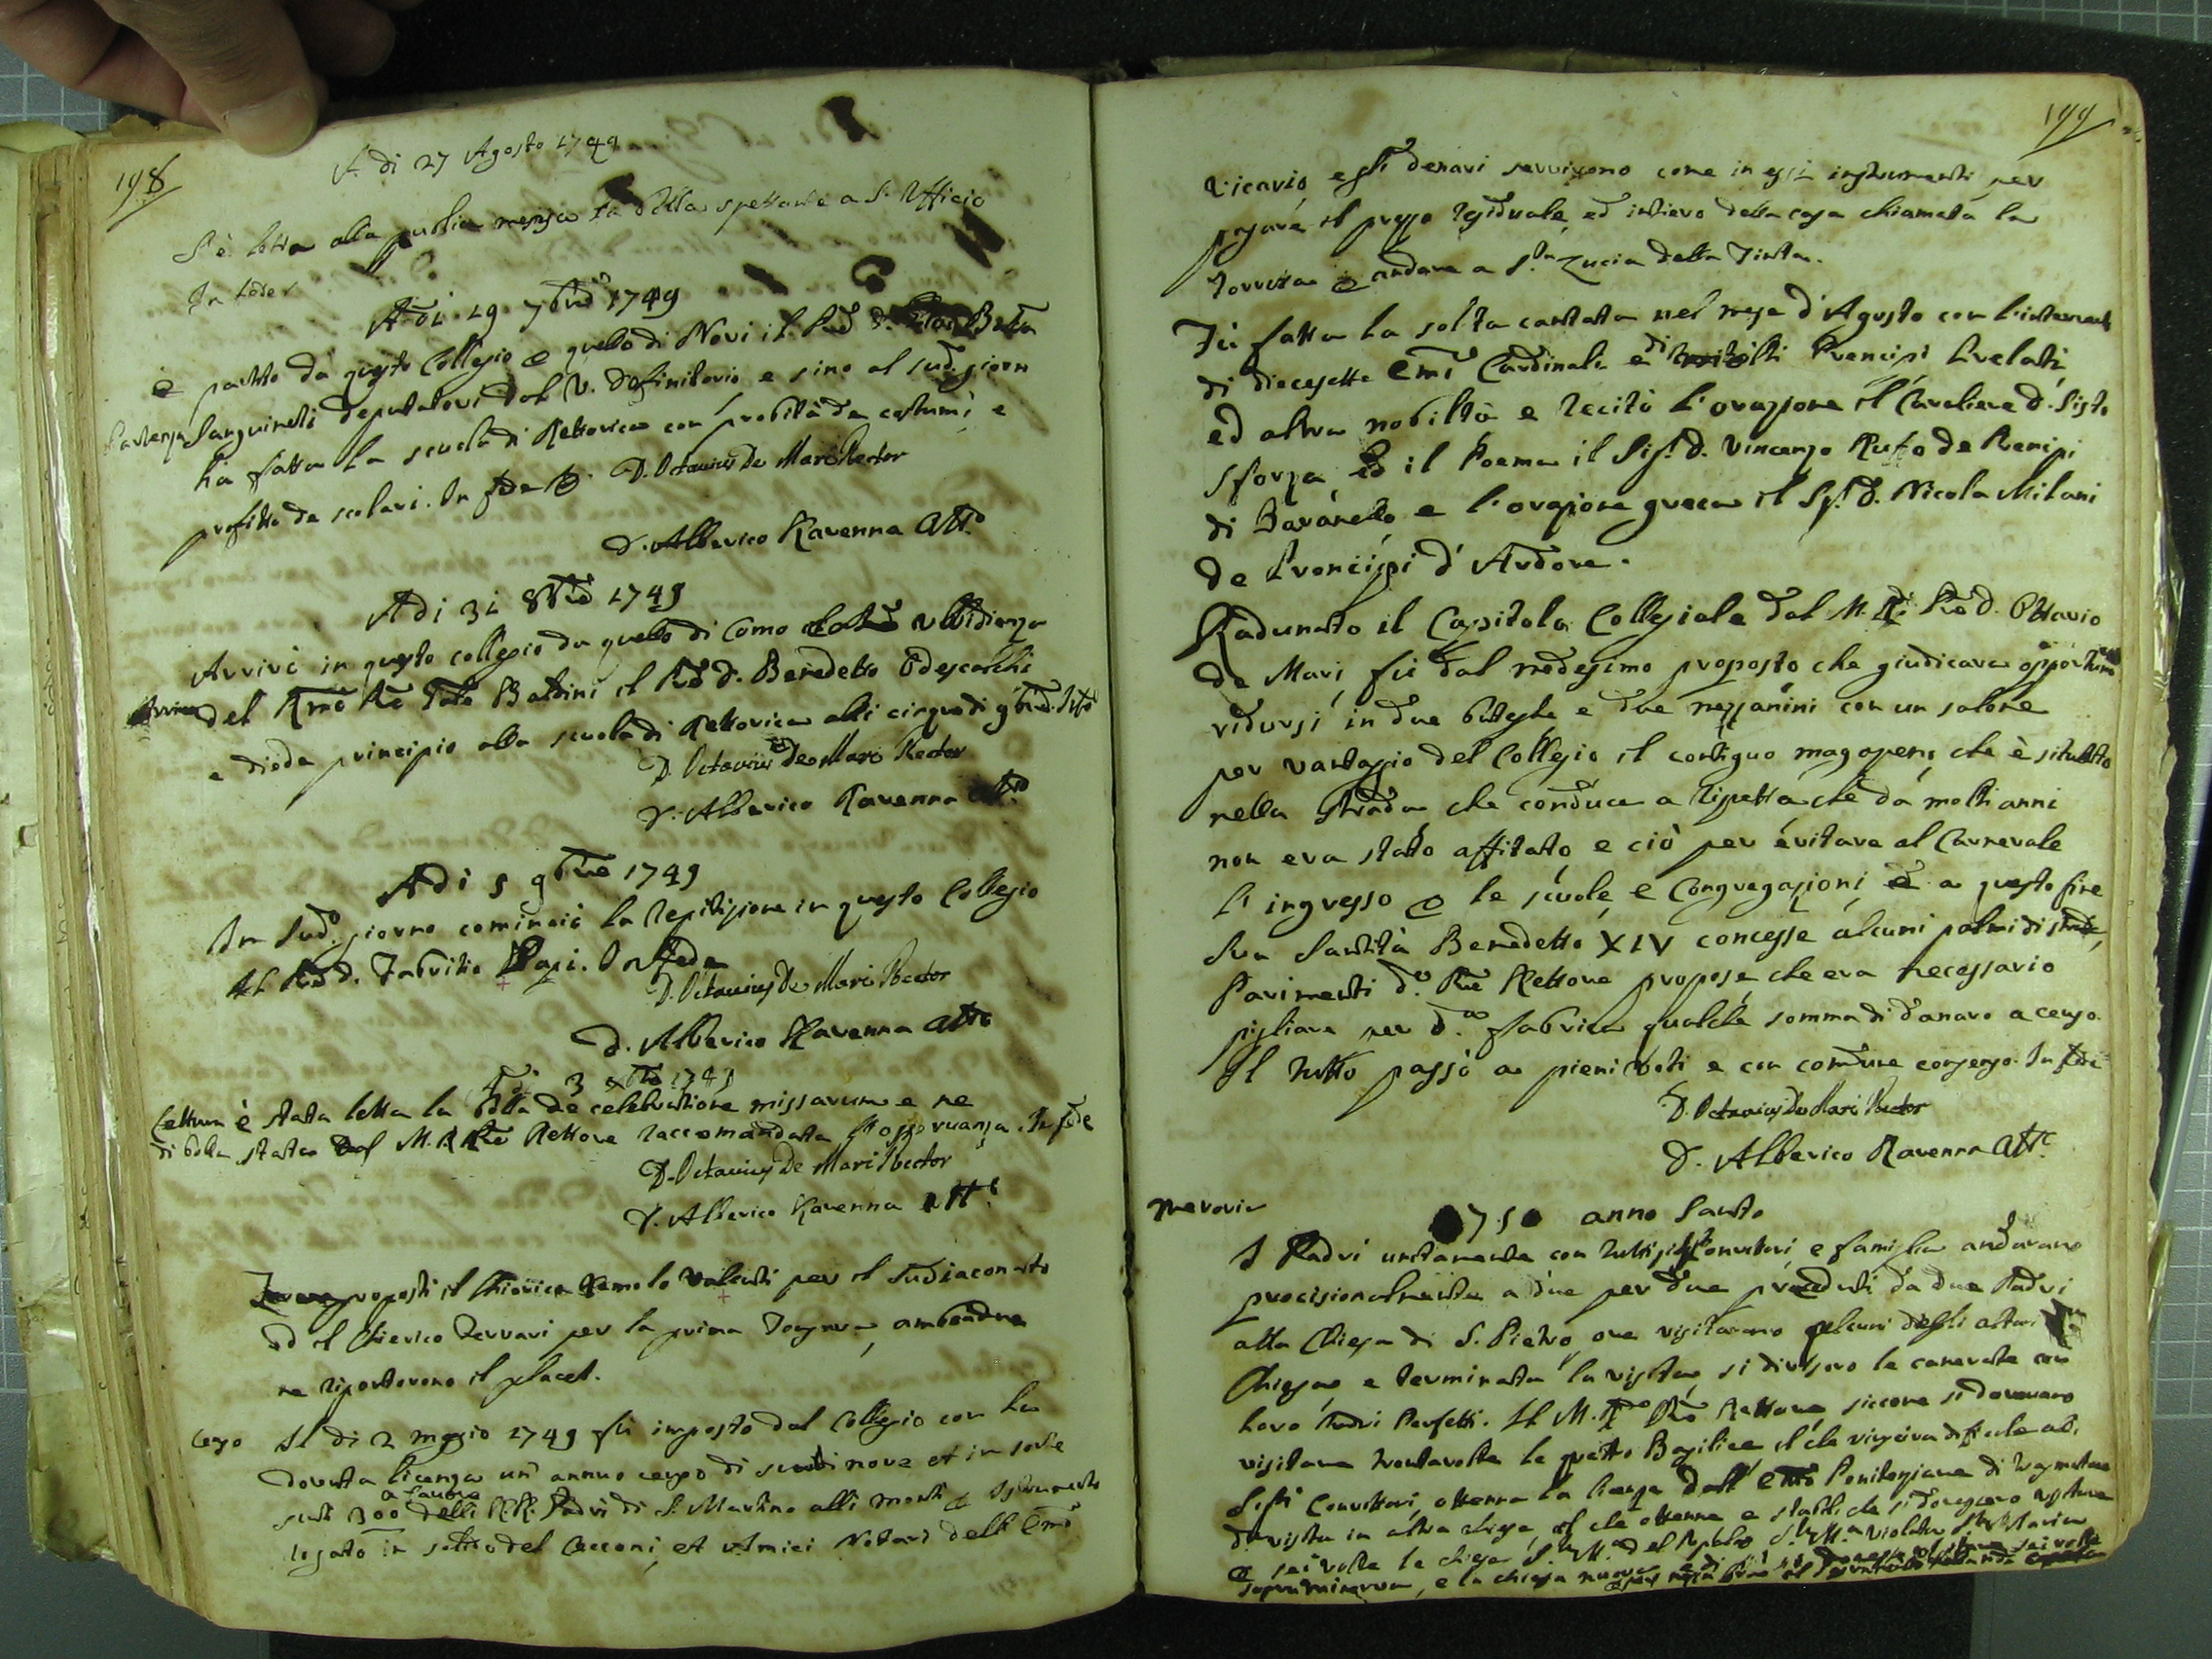 198
A di 27 Agosto 1749
S'è letta alla publica mensa la Bolla spettante a S. Ufficio
In fede
A di 19 7bre 1749
è partito da questo Collegio e quello di Novi il Pre D.
Partenza Sanguineti deputatovi dal V. Definitorio, e sino al sud. giorno
ha fatta la scuola di Rettorica con probità de costumi, e
profitto de scolari. In fede D. Octavius De Mari Rector
D. Alberico Ravenna Att.o
A di 31 8bre 1749
Arrivò in questo collegio da quello di Como ubbidienza
Arrivo del Rmo Pre Baldini il Pre D. Benedetto Odescalchi
e diede principio alla scuola di Rettorica alli cinque di 9bre
D. Octavius De Mari Rector
D. Alberico Ravenna Att.o
A di 5 9bre 1749
In sud.o giorno cominciò la repitizione in questo Collegio
Il Pre D. Fabritio Papi. In fede
D. Octavius De Mari Rector
D. Alberico Ravenna Atto
A di 3 xbre 1749
Lettura è stata letta la Bolla de celebratione missarum e ne
di bolla stata dal M.R. Pre Rettore raccomandata l'osservanza. In fede
D. Octavius De Mari Rector
D. Alberico Ravenna Att.o
proposti il Chierico Remolo Valenti per il sudiaconato
ed il Chierico Ferrari per la prima Tonsura, ambedue
ne riportorono il placet.
Censo Il di 2 maggio 1749 fù imposto dal Collegio con la
dovuta licenza un annuo censo di scudi nove et in sorte
a favore
scudi 300 delli RR. Padri di S. Martino alli Monti Istrumento
rogato in solido del Cecconi, et Amici Notari dell' Emo
199
Vicario, e gli denari servirono come in essi instrumenti per
pagare il prezzo residuale, ed intiero della casa chiamata la
Torretta andare a S.ta Lucia della Tinta.
Fù fatta la solita cantata nel mese d'Agosto con l'intervento
di diecesette Emi Cardinali e di molti Prencipi Prelati,
ed altra nobiltà e recitò l'orazione il Cavaliere D. Sisto
Sforza, ed il Poema il Sig. D. Vincenzo Ruffo de Prencipi
di Baranello, e l'orazione greca il Sig. D. Nicola Milani
de Prencipi d'Ardore.
Radunato il Capitolo Collegiale dal M. R. Pre D. Ottavio
de Mari, fù dal medesimo proposto che giudicava opportuno
ridursi in due botteghe e due mezzanini con un salone
per vantaggio del Collegio il contiguo magazeno, che è situato
nella strada che conduce a Ripetta, che da molti anni
non era stato affitato, e ciò per evitare al Carnevale
l'ingresso le scuole, e Congregazioni, e a questo fine
Sua Santità Benedetto XIV concesse alcuni palmi di strada,
Parimenti d.o Pre Rettore propose, che era necessario
pigliare per d.a fabrica qualche somma di danaro a censo.
Il tutto passò a pieni voti e con comune consenso. In fede
D. Octavius De Mari Rector
D. Alberico Ravenna Att.o
Memoria
1750 anno Santo
I Padri unitamente con tutti i SS. Convittori e famiglia andarano
procisionalmente a due per due preceduti da due Padri
alla Chiesa di S. Pietro, ove visitarano alcuni degli altari
Chiesa e terminata la visita, si divisero le camerate con
loro Padri Perfetti. Il M. R. Pre Rettore, siccome si dovevano
visitare trentavolte le quattro Basilice il che riusciva dificile ali
Sigri Convittori, ottenne la licenza dall' Emo Penitenziere di tramutare
la visita in altra chiesa, il che ottenne e stabilì che si dovessero visitare
sei volte le chiese S. M.a del Popolo S. M.a in Violata S. Maria
sopra Minerva, e la chiesa nuova